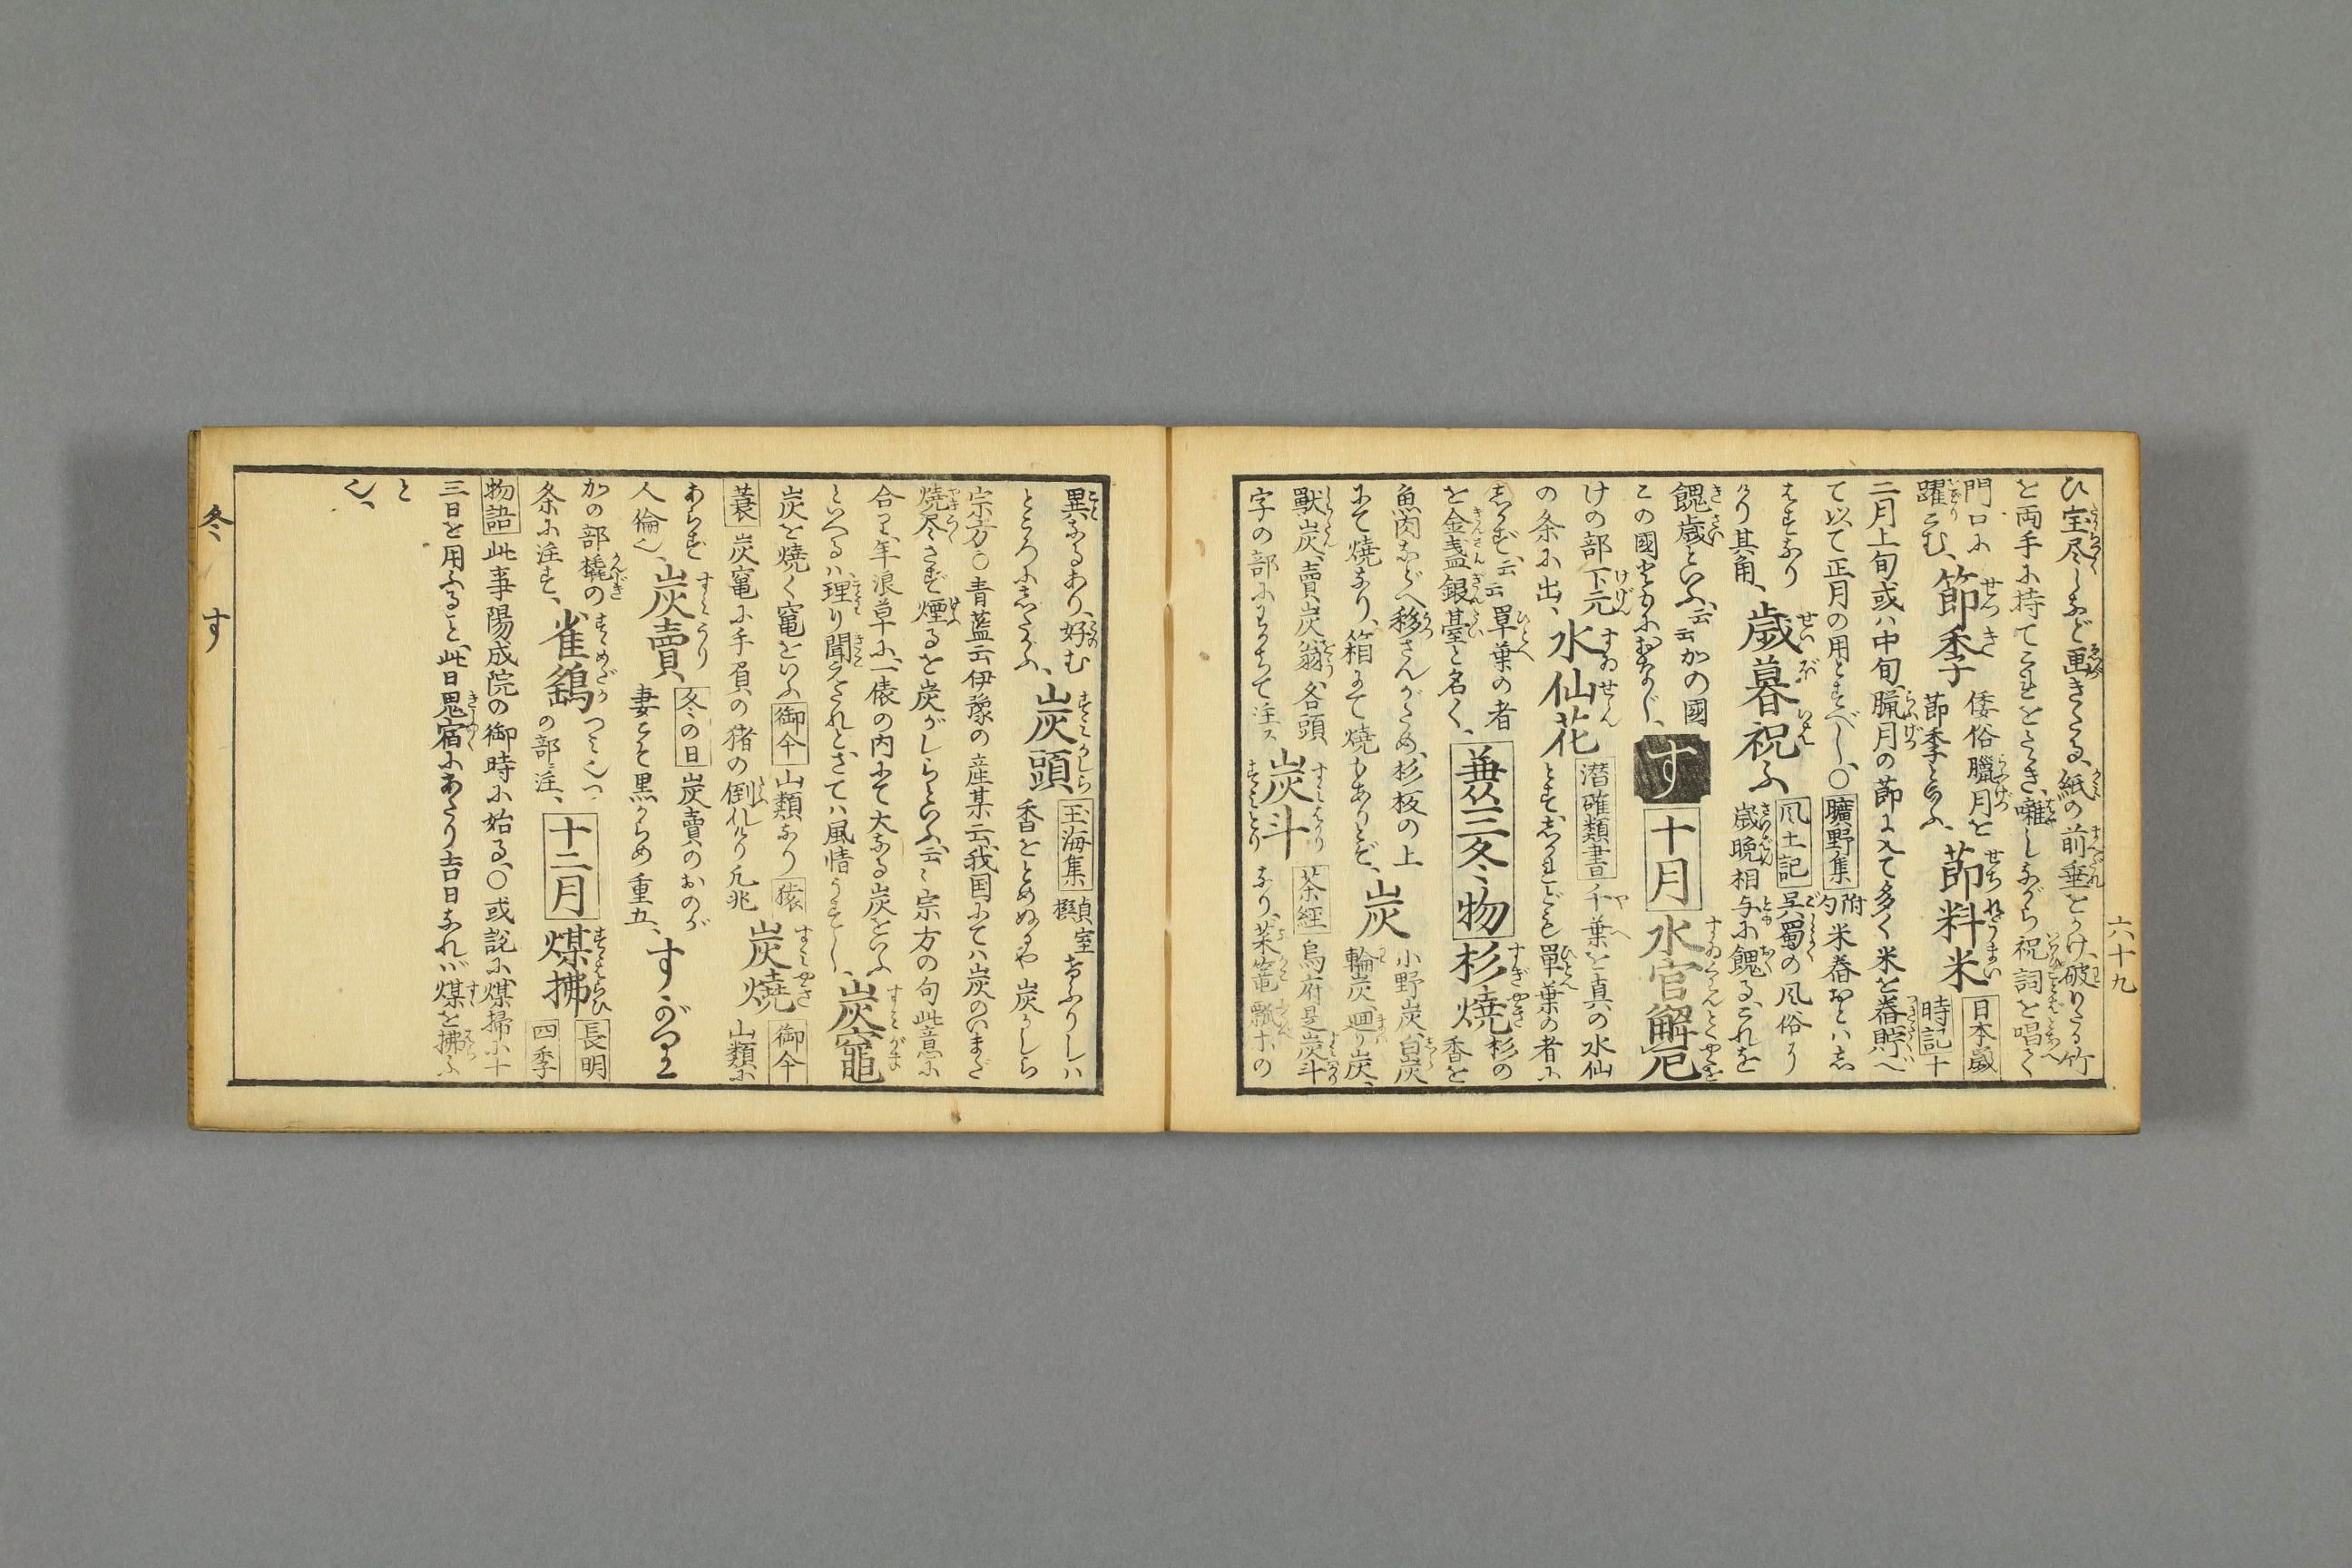 六十九
ひ宝尽しなど画きたる、紙の前垂をかけ、破りたる竹
を両手に持てこれをたゝき、囃しながら祝詞を唱て
門口に
躍こむ、節季 倭俗臘月を
節季と云ふ、節料米 日本歳
時記 十
二月上旬或ハ中旬、臘月の節に入て多く米を舂貯へ
て以て正月の用とすべし、〇曠野集 附
句 米舂おとハ志
はすなり
けり其角、歳暮祝ふ 風土記 呉蜀の風俗
歳晩相与に餽る、これを
餽歳といふ、云云かの國
この國ともにおなじ、す 十月 水官解厄
けの部下元
の条に出、水仙花 潜確類書 千葉を真の水仙
とす、しかれども單葉の者に
しかず、云云單葉の者
を金盞銀䑓と名く、兼三冬物 杉焼 杉の
香を
魚肉などへ移さんがため、杉板の上
にて焼なり、箱にて焼もありとぞ、炭 小野炭、白炭
輪炭、廻り炭、
獸炭、賣炭翁、各頭
字の部にわかちて注ス 炭斗 茶経 烏府是炭斗
なり、菜篭瓢ホの
異なるあり、好む
ところにしたがふ、炭頭 玉海集 貞室
香をとめぬるや炭かしら
宗方〇青藍云伊豫の産某云、我国にてハ炭のいまだ
焼尽さず煙るを炭がしらといふ、云々宗方の句此意に
合り、年浪草に、一俵の内にて大なる炭をいふ
といへるハ理り聞えたれと、さてハ風情うすし、炭竈
炭を焼く竃をいふ 御傘 山類なり 猿
蓑 炭竃に手負の猪の倒れけり凡兆 炭焼 御傘
山類に
あらず
人倫也、炭賣 冬の日 炭賣のおのが
妻こそ黒からめ重五、すがつこ
かの部橇の
条に注す、雀鷂 つミ也つ
の部注、十二月 煤拂 長明
四季
物語 此事陽成院の御時に始る、〇或説に煤掃に十
三日を用ふること、此日鬼宿にあたり吉日なれバ煤を拂ふ
と
也、
冬 す